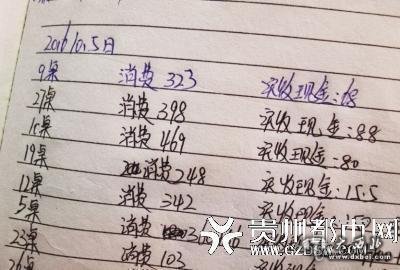 2016.10.5日
9桌 消费 323 实收现金:68
27桌 消费 398 实收现金:88
1桌 消费 469 实收现金:80
19桌 消费248 实收现金:15.5
12桌 消费 342 实收现金
5桌 消费
23桌 消费 103
26桌
贵州都市网
www.dxbei.com